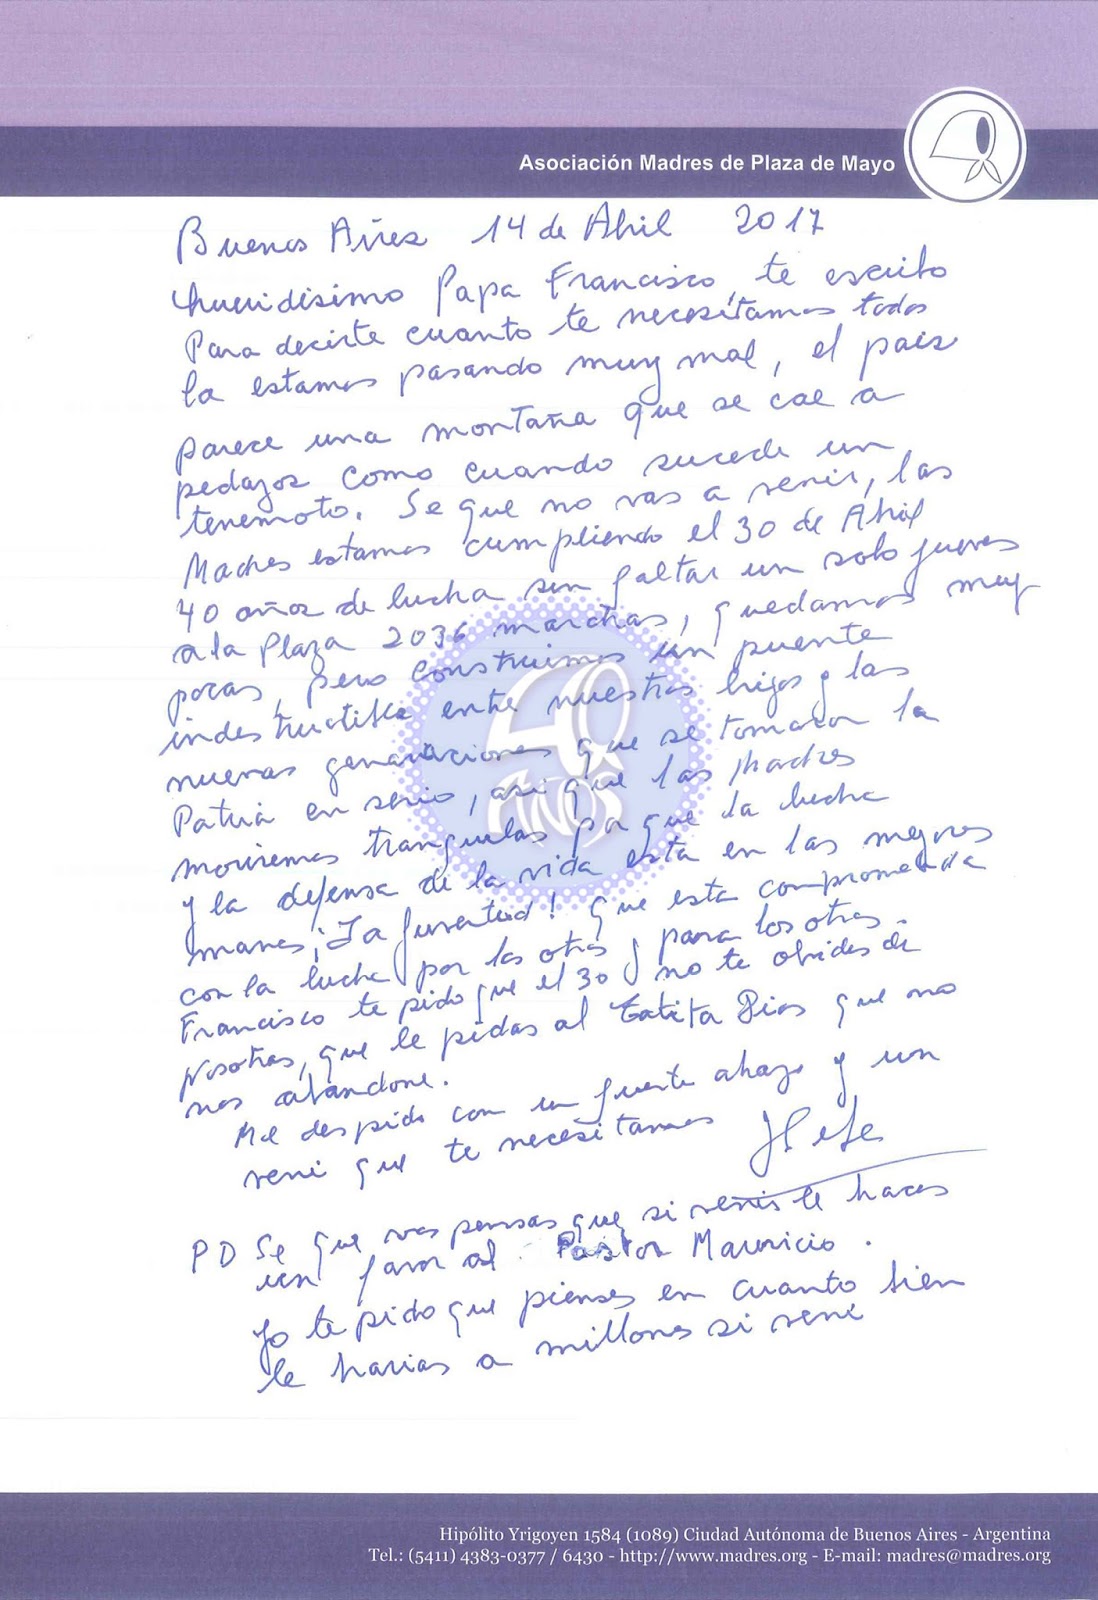 Asociación Madres de Plaza de Mayo
Buenos Aires 14 de Abril 2017
Queridisimo Papa Francisco, te escribo
Para decirte cuanto te necesitamos todos
la estamos pasando muy mal, el pais
parece una montaña que se cae a
pedazos como cuando sucede un
terremoto. Se que no vas a venir, las
Madres estamos cumpliendo el 30 de Abril
40 años de lucha sin faltar un solo jueves
a la Plaza 2036 marchas, quedamos muy
pocas, pero construimos un puente
indestructible entre nuestros hijos y las
nuevas generaciones que se tomaron la
Patria en serio, asi que las Madres
moriremos tranquilas por que la lucha
y la defensa de la vida esta en las mejores
manos ¡La Juventud! que esta comprometida
con la lucha por los otros y para los otros.
Francisco te pido que el 30 no te olvides de
Nosotras, que le pidas al Tatita Dios que no
nos abandone.
Me despido con un fuerte abrazo y un
veni que te necesitamos Hebe
PD Se que vas pensas que si venis le haces
un favor al Pastor Mauricio.
yo te pido que pienses en cuanto bien
le harias a millones si veni
40
AÑOS
Hipólito Yrigoyen 1584 (1089) Ciudad Autónoma de Buenos Aires - Argentina
Tel.: (5411) 4383-0377 / 6430 - http://www.madres.org - E-mail: madres@madres.org